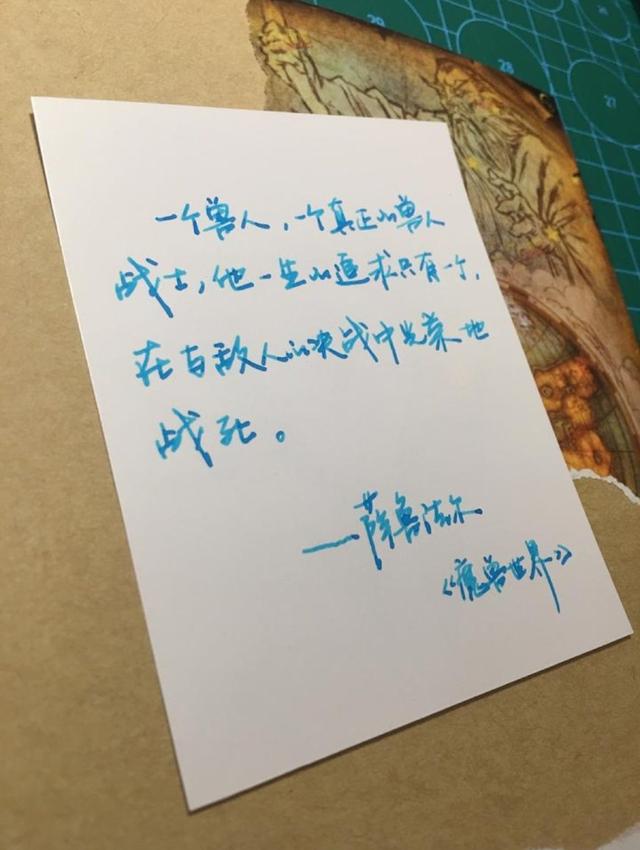 一个兽人，一个真正的兽人
战士，他一生的追求只有一个，
在与敌人的决战中光荣地
战死。
——萨鲁法尔
《魔兽世界》
20
28
27